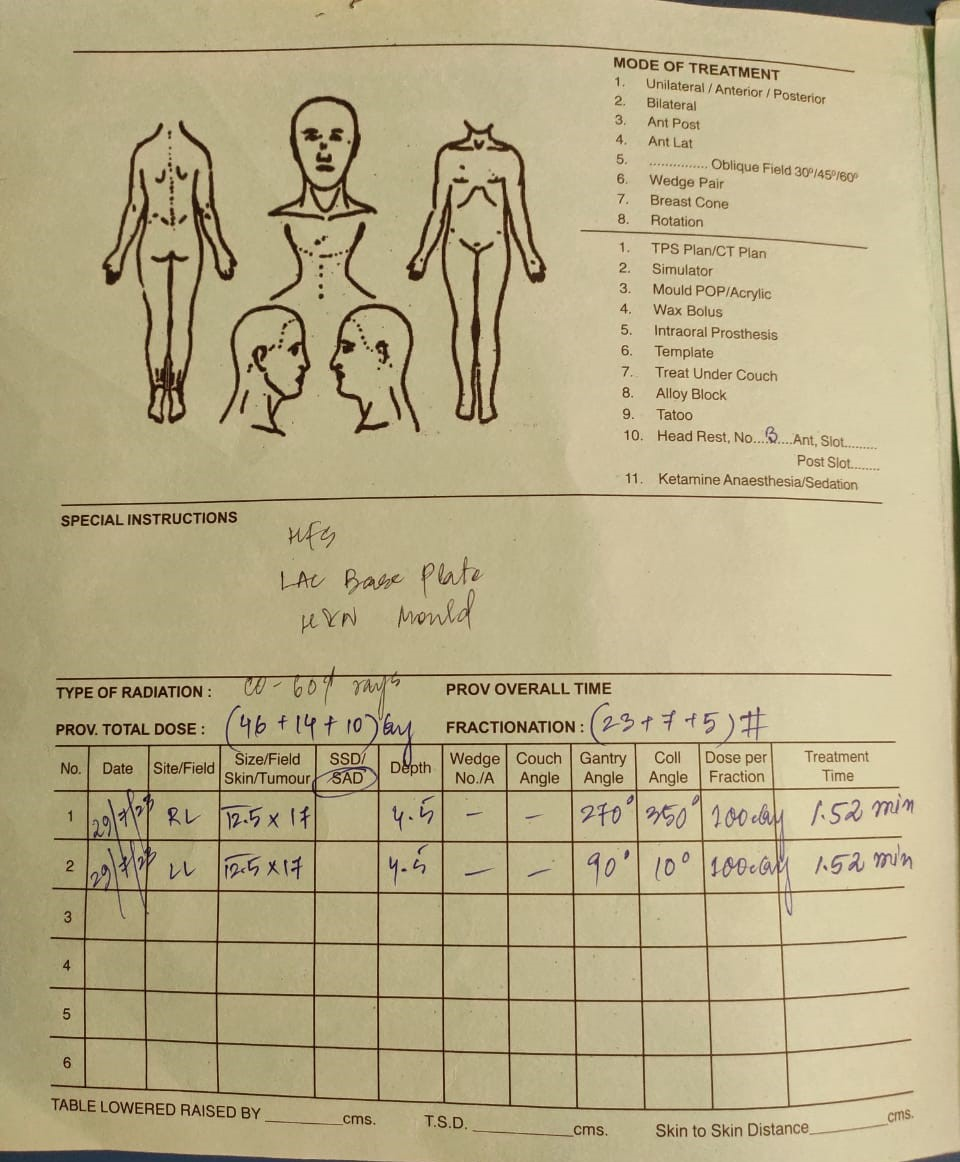 MODE OF TREATMENT
1. Unilateral / Anterior / Posterior
2. Bilateral
3. Ant Post
4. Ant Lat
5. ............... Oblique Field 30º/45º/60º
6. Wedge Pair
7. Breast Cone
8. Rotation
1. TPS Plan/CT Plan
2. Simulator
3. Mould POP/Acrylic
4. Wax Bolus
5. Intraoral Prosthesis
6. Template
7. Treat Under Couch
8. Alloy Block
9. Tatoo
10. Head Rest, No....B....Ant, Slot.........
Post Slot........
11. Ketamine Anaesthesia/Sedation
SPECIAL INSTRUCTIONS
HFS
LAC Base Plate
H&N Mould
TYPE OF RADIATION : CO-60 rays PROV OVERALL TIME
PROV. TOTAL DOSE : (46 + 14 + 10) Gy FRACTIONATION : (23 + 7 + 5) #
No. Date Site/Field Size/Field Skin/Tumour SSD/ SAD Depth Wedge No./A Couch Angle Gantry Angle Coll Angle Dose per Fraction Treatment Time
1 RL 12.5 x 17 4.5 – – 270° 350° 100 cGy 1.52 min
2 LL 12.5 x 17 4.5 – – 90° 10° 100 cGy 1.52 min
3
4
5
6
TABLE LOWERED RAISED BY ________ cms. T.S.D. __________ cms. Skin to Skin Distance________ cms.